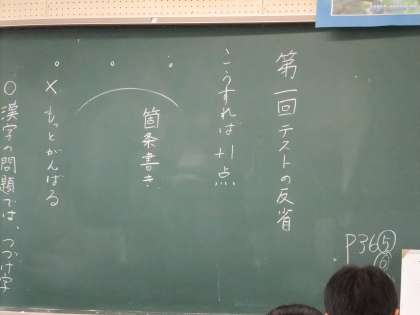 第一回テストの反省
こうすれば+1点
・
箇条書き
・
・
×もっとがんばる
○漢字の問題では、つづけ字
P36⑤
⑥